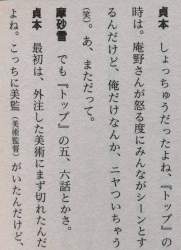 貞本　しょっちゅうだったよね、『トップ』の
時は。庵野さんが怒る度にみんながシーンとす
るんだけど、俺だけなんか、ニヤついちゃう
（笑）。あ、まただって。
摩砂雪　でも『トップ』の五、六話とかさ。
貞本　最初は、外注した美術にまず切れたんだ
よね。こっちに美監（美術監督）がいたんだけど、